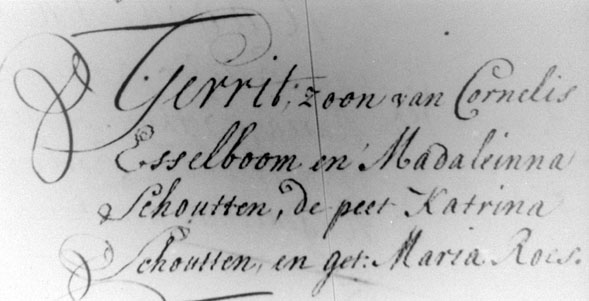 Gerrit, zoon van Cornelis
Esselboom en Madaleinna
Schoutten, de peet Katrina
Schoutten, en get: Maria Roes.